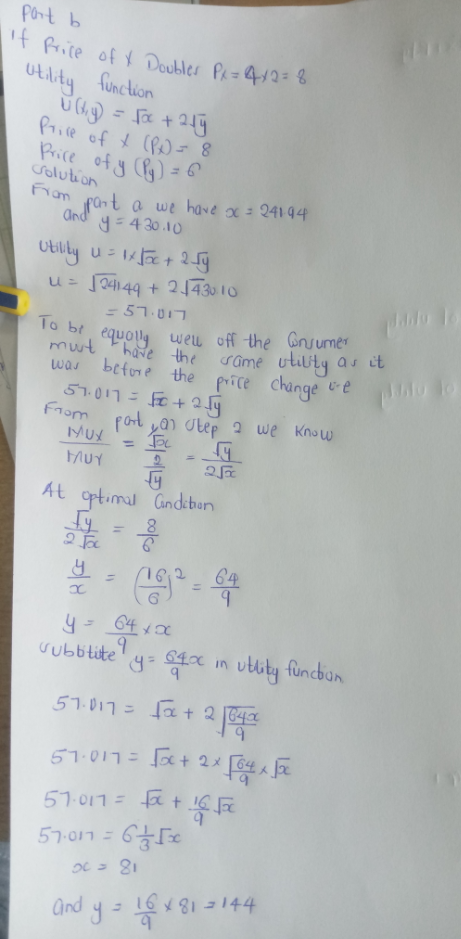 Part b
If Price of X Doubles Px = 4x2 = 8
Utility function
U(x,y) = √x + 2√y
Price of X (Px) = 8
Price of y (Py) = 6
Solution
From part a we have x = 24194
and y = 430.10
Utility u = 1x√x + 2√y
u = √24149 + 2√430.10
= 57.017
To be equally well off the Consumer
must have the same utility as it
was before the price change i.e
57.017 = √x + 2√y
From part a, step 2 we know
MUX/MUY = (1/√x)/(2/√y) = √y/2√x
At optimal Condition
√y/2√x = 8/6
y/x = (16/6)² = 64/9
y = 64/9 × x
Subbtitute y = 64x/9 in utility function
57.017 = √x + 2√(64x/9)
57.017 = √x + 2 × √(64/9) × √x
57.017 = √x + 16/9 √x
57.017 = 6 1/3 √x
x = 81
and y = 16/9 × 81 = 144